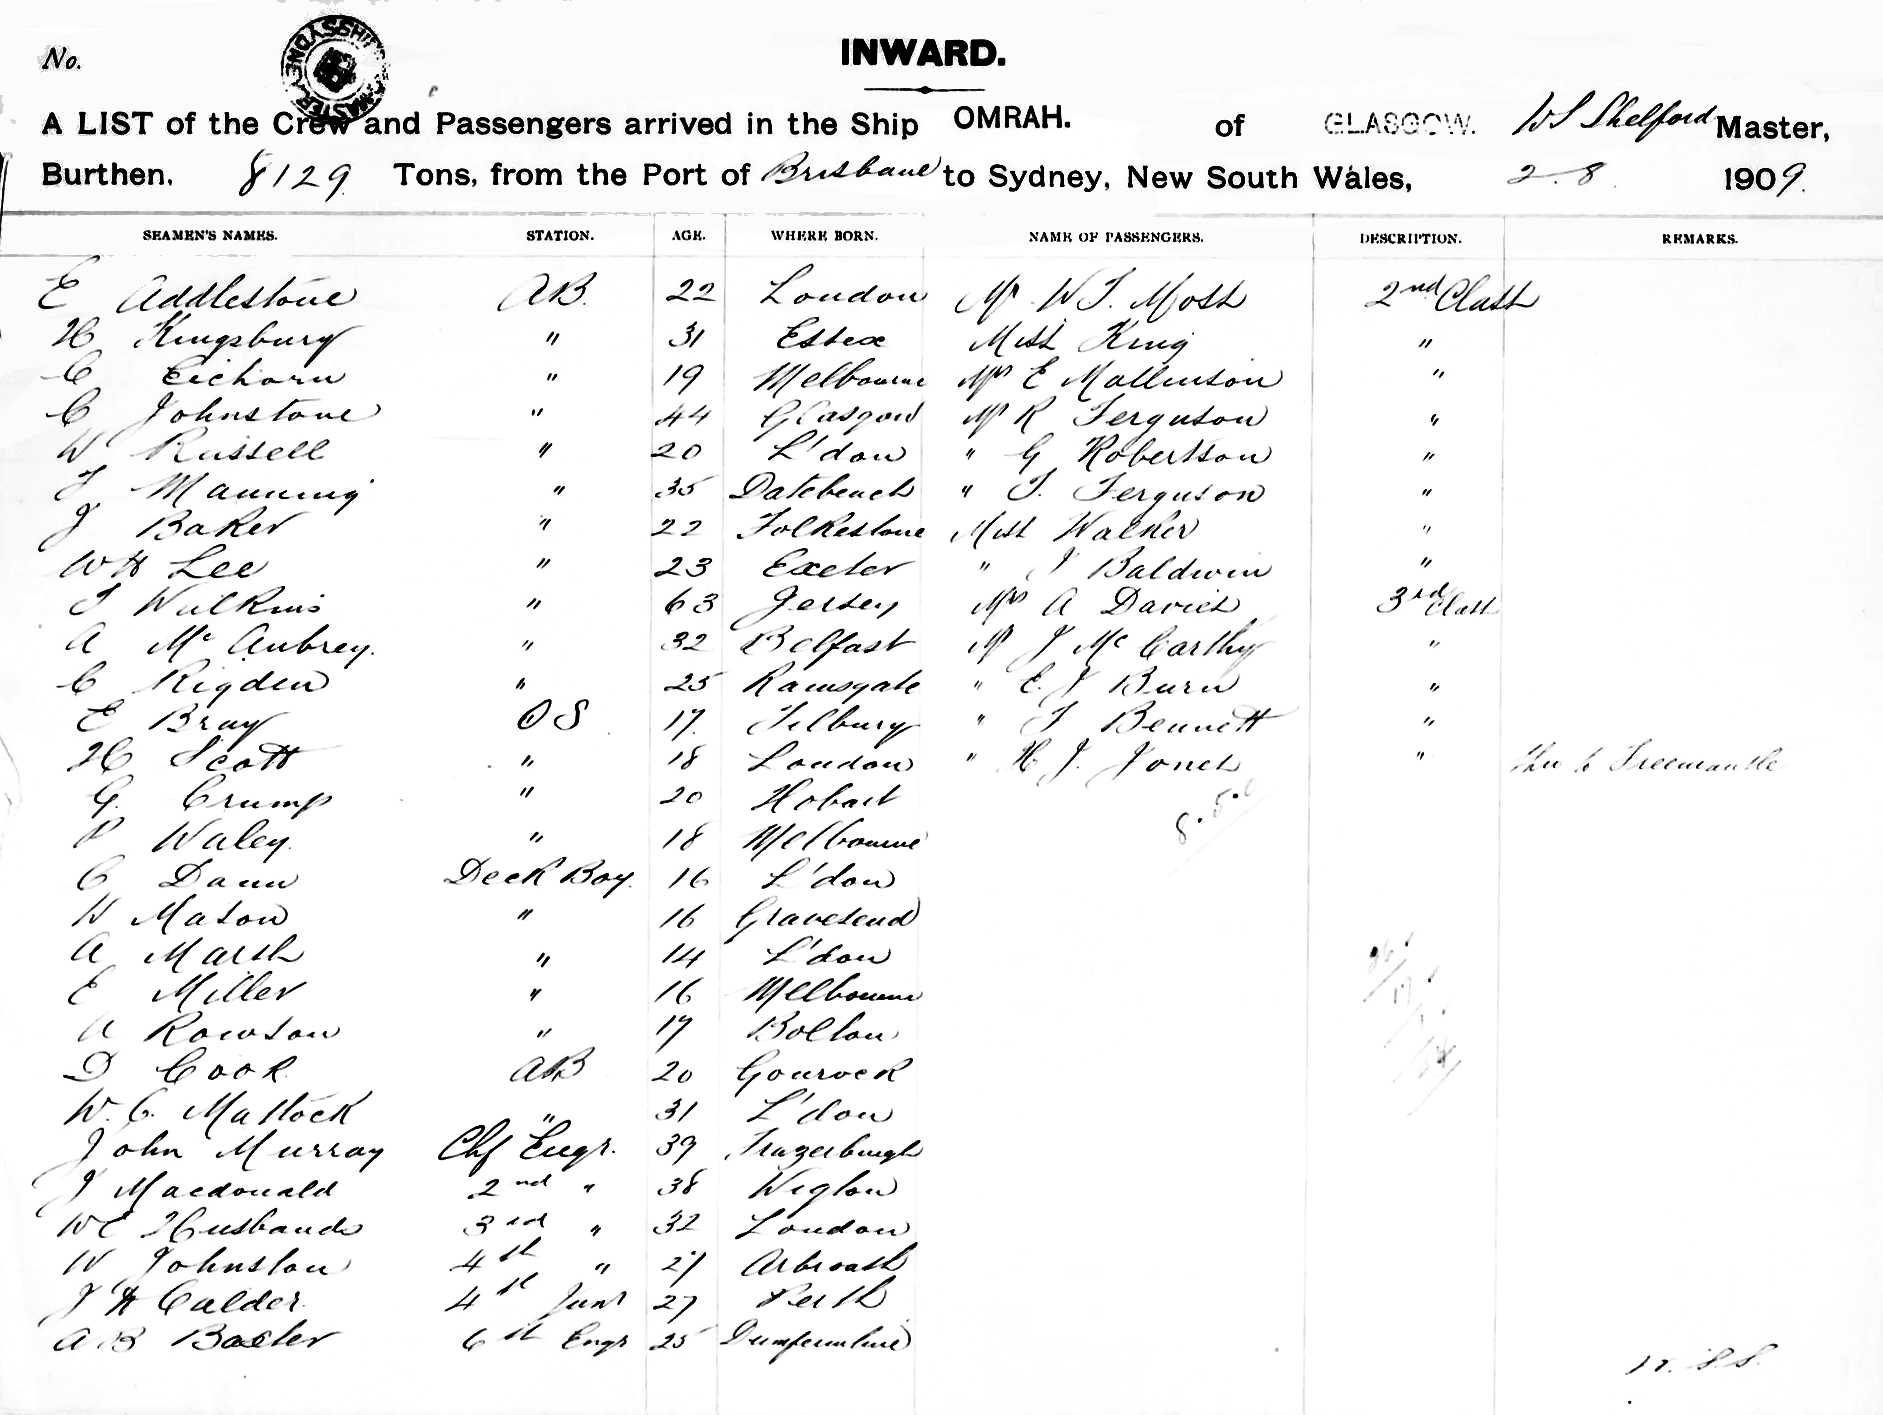 No.
INWARD.
A LIST of the Crew and Passengers arrived in the Ship OMRAH. of GLASGOW. W S Shelford Master,
Burthen, 8129 Tons, from the Port of Brisbane to Sydney, New South Wales, 2.8. 1909.
SEAMEN'S NAMES. STATION. AGE. WHERE BORN. NAME OF PASSENGERS. DESCRIPTION. REMARKS.
E Addlestone AB. 22 London Mr W T. Moss 2nd Class
H Kingsbury " 31 Essex Miss King "
C Eichorn " 19 Melbourne Mrs E Mallinson "
C Johnstone " 44 Glasgow Mr R Ferguson "
W Russell " 20 L'don " G Robertson "
T Manning " 35 " T. Ferguson "
J Baker " 22 Folkestone Miss Walker "
W H Lee " 23 Exeter " J Baldwin "
T Wilkins " 63 Jersey Mrs A Davies 3rd Class
A Mc Aubrey. " 32 Belfast Mr J McCarthy "
C Rigden " 25 Ramsgate " E. J Burn "
E Bray OS 17. Tilbury " T Bennett "
H Scott " 18 London " H J. Jones " Thro to Freemantle
G. Crump " 20 Hobart
P Waley. " 18 Melbourne
C Dann Deck Boy. 16 L'don
W Mason " 16 Gravesend
A Marsh " 14 L'don
E Miller " 16 Melbourne
A Rowson " 17 Bolton
D Cook AB 20 Gourock
W. C. Mattock " 31 L'don
John Murray Chf Engr. 39 Frazerburgh
J Macdonald 2nd " 38 Wigton
W E Husbands 3rd " 32 London
W Johnston 4th " 27 Arbroath
J H Calder 4th Junr 27 Perth
A B Baxter 6th Engr 25 Dumfermline